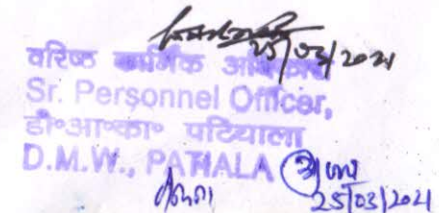 25/03/2021
वरिष्ठ कार्मिक अधिकारी
Sr. Personnel Officer,
डी॰आ॰का॰ पटियाला
D.M.W., PATIALA
25/03/2021